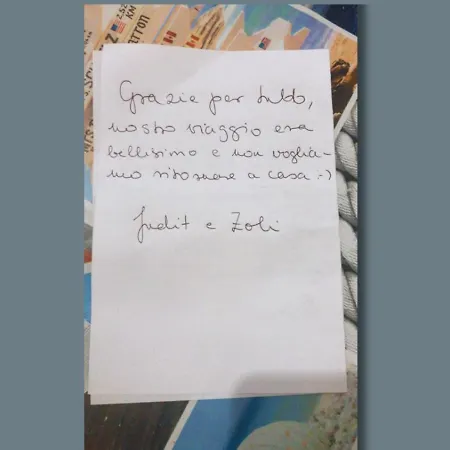 Grazie per tutto,
nostro viaggio era
bellisimo e non voglia-
mo ritornare a casa :-)
Judit e Zoli